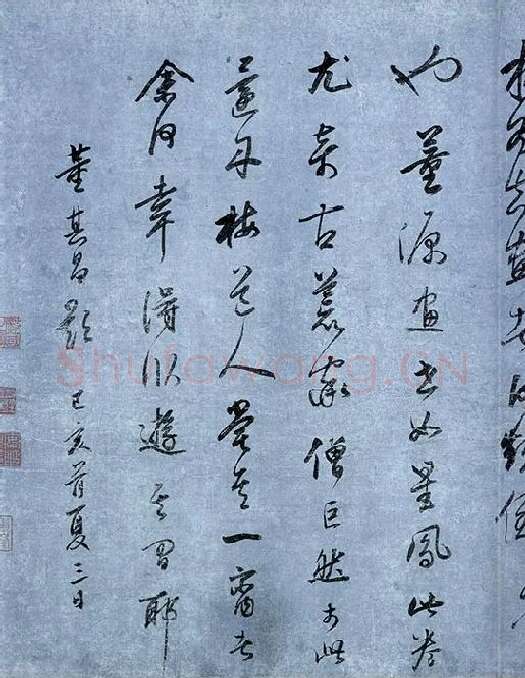 也董源畫世如星鳳此卷
尤奇古荒率僧巨然於此
還丹梅道人嘗其一臠者
余何幸得臥遊其間耶
董其昌題 己亥首夏三日
Shufawang.CN